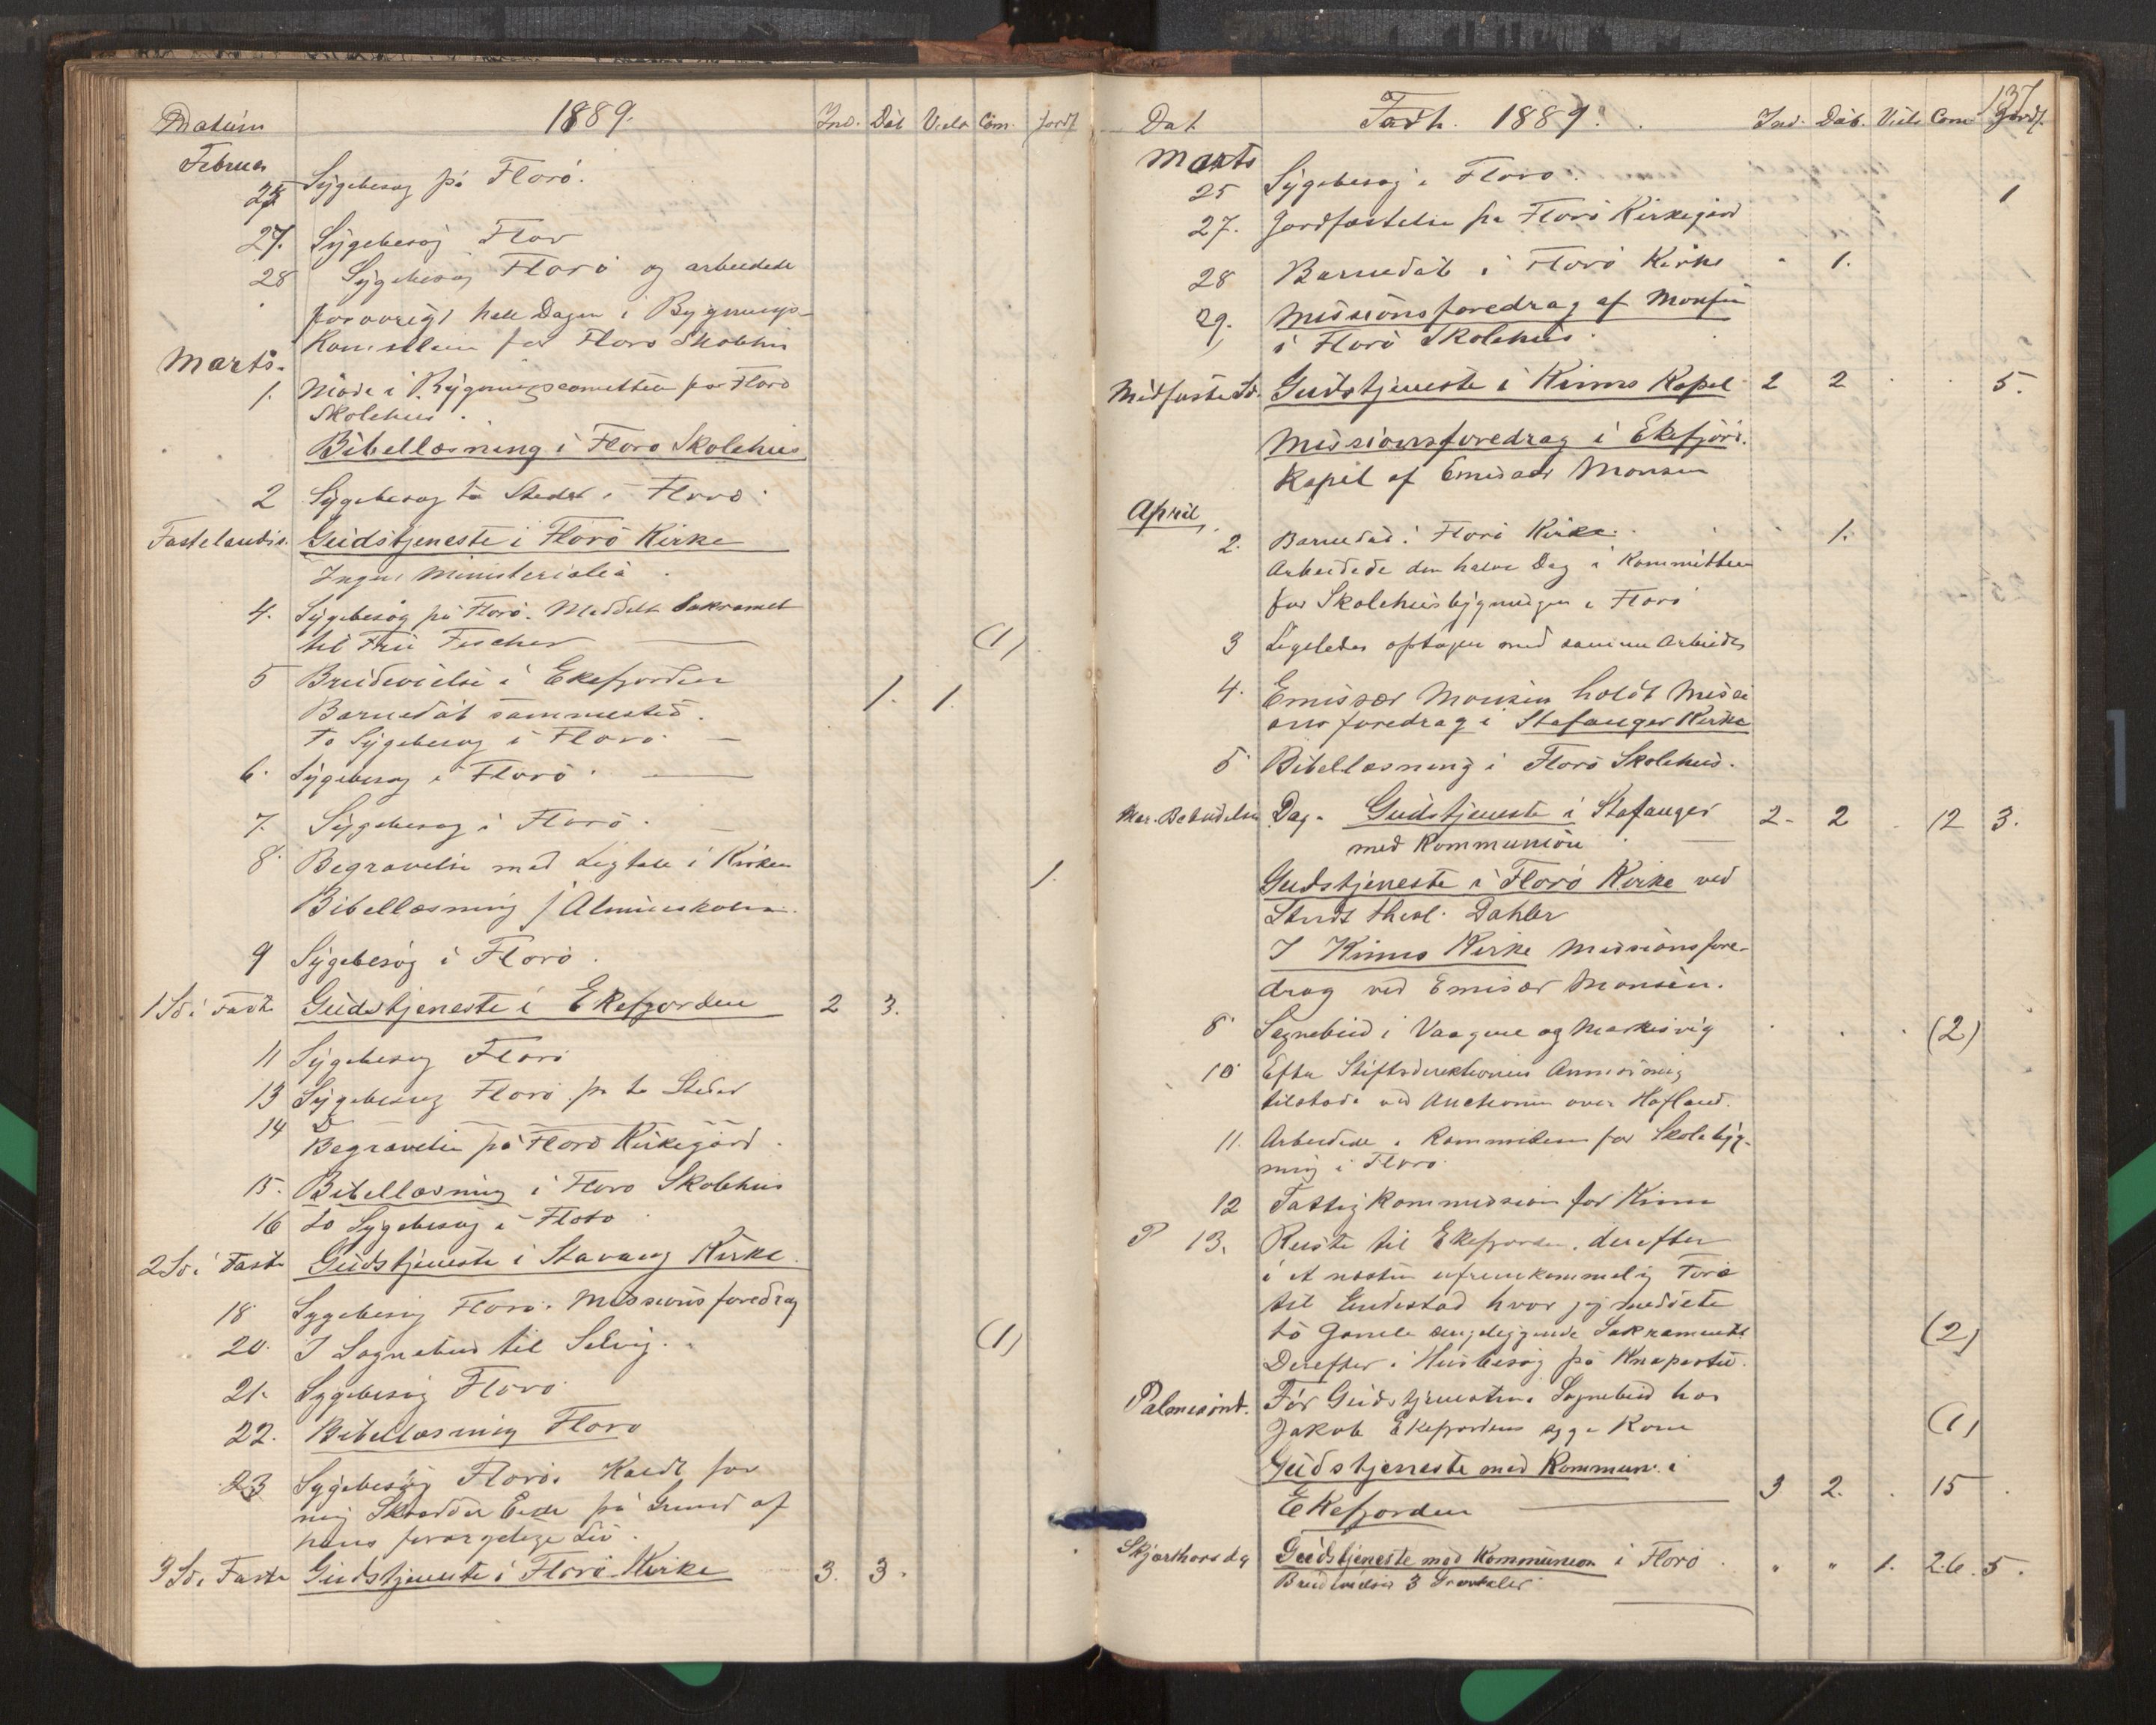 Datum 1889. Ind. Dåb Viels Com. Jordf
Februar
25 Sygebesøg på Florø.
27. Sygebesøg Florø
28 Sygebesøg Florø og arbeidede
forøvrigt hele Dagen i Bygnings-
Komiteen for Florø Skolehus
Marts.
1. Møde i Bygningscomitteen for Florø
Skolehus.
Bibellæsning i Florø Skolehus
2 Sygebesøg to Steder i Florø.
Fastelavns. Gudstjeneste i Florø Kirke
Ingen Ministerialia
4. Sygebesøg på Florø. Meddelt Sakramet
til Fru Fischer (1)
5 Brudevielse i Ekefjorden
Barnedåb sammested. 1. 1.
To Sygebesøg i Florø.
6. Sygebesøg i Florø.
7. Sygebesøg i Florø.
8 Begravelse med Ligtale i Kirken 1.
Bibellæsning i Almueskolen.
9 Sygebesøg i Florø.
1 Sø i Faste Gudstjeneste i Ekefjorden 2 3.
11 Sygebesøg Florø
13 Sygebesøg Florø på to Steder
14 Begravelse på Florø Kirkegård.
15. Bibellæsning i Florø Skolehus
16 to Sygebesøg i Florø
2 Sø i Faste Gudstjeneste i Stavang Kirke.
18 Sygebesøg Florø. Missionsforedrag
20. I Sognebud til Selvig. (1)
21. Sygebesøg Florø
22. Bibellæsning Florø
23 Sygebesøg Florø. Kaldt for
mig Skrædder Eide på Grund af
hans forargelige Liv.
3 Sø i Faste Gudstjeneste i Florø Kirke 3. 3.
137
Dat Fadh. 1889. Ind. Dåb. Viels Com Jordf.
Marts
25 Sygebesøg i Florø.
27. Jordfæstelse på Florø Kirkegård 1
28 Barnedåb i Florø Kirke 1.
29. Missionsforedrag af Monsen
i Florø Skolehus.
Midfaste Sø. Gudstjeneste i Kinns Kapel 2 2 5.
Missionsforedrag i Ekefjord.
Kapel af Emisær Monsen
April
2. Barnedåb i Florø Kirke. 1.
Arbeidede den halve Dag i Kommitteen
for Skolehusbygningen i Florø
3 Ligeledes optagen med samme Arbeide
4. Emissær Monsen holdt Missi
onsforedrag i Stafanger Kirke
5 Bibellæsning i Florø Skolehus.
Mar. Bebudelses Dag. Gudstjeneste i Stafanger 2. 2 12 3.
med Kommunion
Gudstjeneste i Florø Kirke ved
Studt theol. Dahler
I Kinns Kirke Missionsfore-
drag ved Emisær Monsen.
8 Sognebud i Vaagene og Markesvig (2)
10 Efter Stiftsdirektionens Anmodning
tilstede ved Auctionen over Hafland.
11. Arbeidede i Kommiteen for Skolebyg-
ning i Florø.
12 Fattigkommission for Kinn
P 13. Reiste til Ekefjorden, derefter
i et næsten ufremkommelig Føre
til Endestad hvor jeg meddelte
to Gamle sengeliggende Sakramentet (2)
Derefter i Husbesøg på Knapstad.
Palmesønd. Før Gudstjenesten Sognebud hos
Jakob Ekefjordens syge Kone (1)
Gudstjeneste med Kommun. i
Ekefjorden 3 2. 15
Skjærthorsdg Gudstjeneste med Kommunion i Florø. " " 1. 26. 5.
Brudevielse 3 Gravtaler